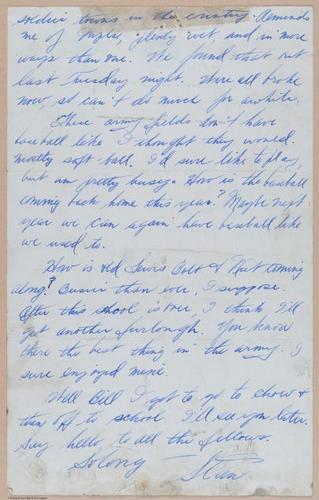 soldier towns in the country. Reminds
me of Mpls, plenty wet, and in more
ways than one. We found that out
last Tuesday night. Were all broke
now, so can't do much for awhile.
These army fields don't have
baseball like I thought they would.
Mostly soft ball. I'd sure like to play,
but am pretty busy. How is the baseball
coming back home this year? Maybe next
year we can again have baseball like
we used to.
How is old Bolt & Nut coming
along? Busier than ever, I suppose.
After this school is over, I think I'll
get another furlough. You know
there the best thing in the army. I
sure enjoyed mine.
Well Bill I got to go to chow &
then off to school. I'll see you later.
Say hello to all the fellows.
So long
Stan